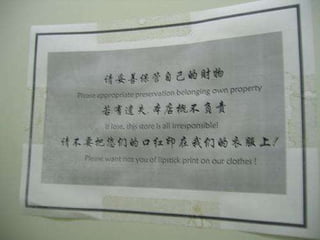 请妥善保管自己的财物
Please appropriate preservation belonging own property
若有遗失.本店概不负责
If lose, this store is all irresponsible!
请不要把您们的口红印在我们的衣服上!
Please want not you of lipstick print on our clothes !